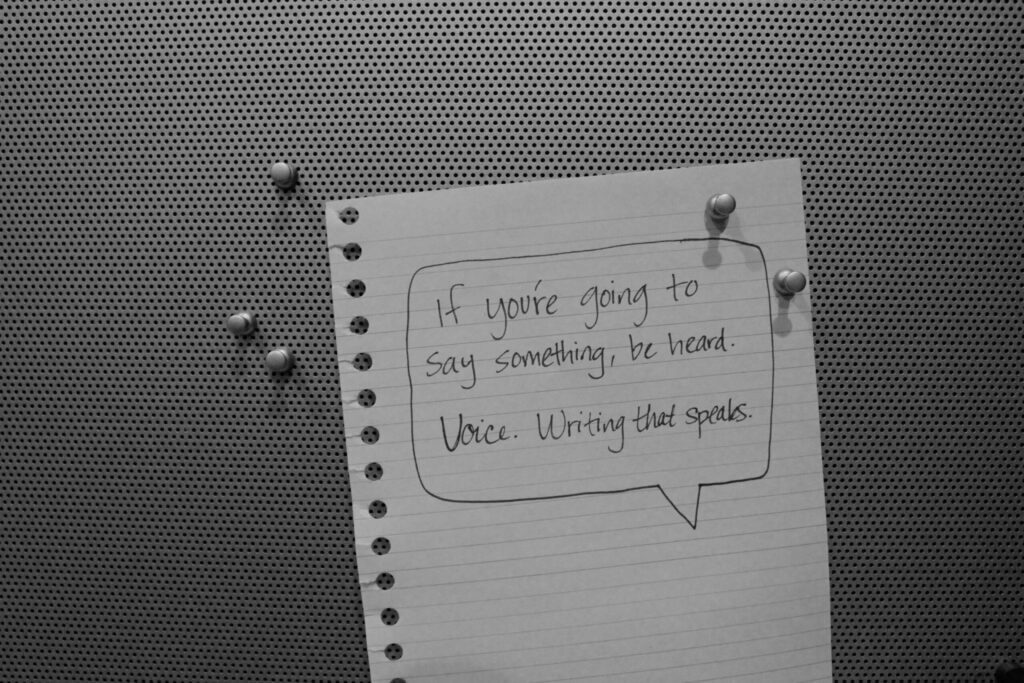 If you're going to
say something, be heard.
Voice. Writing that speaks.